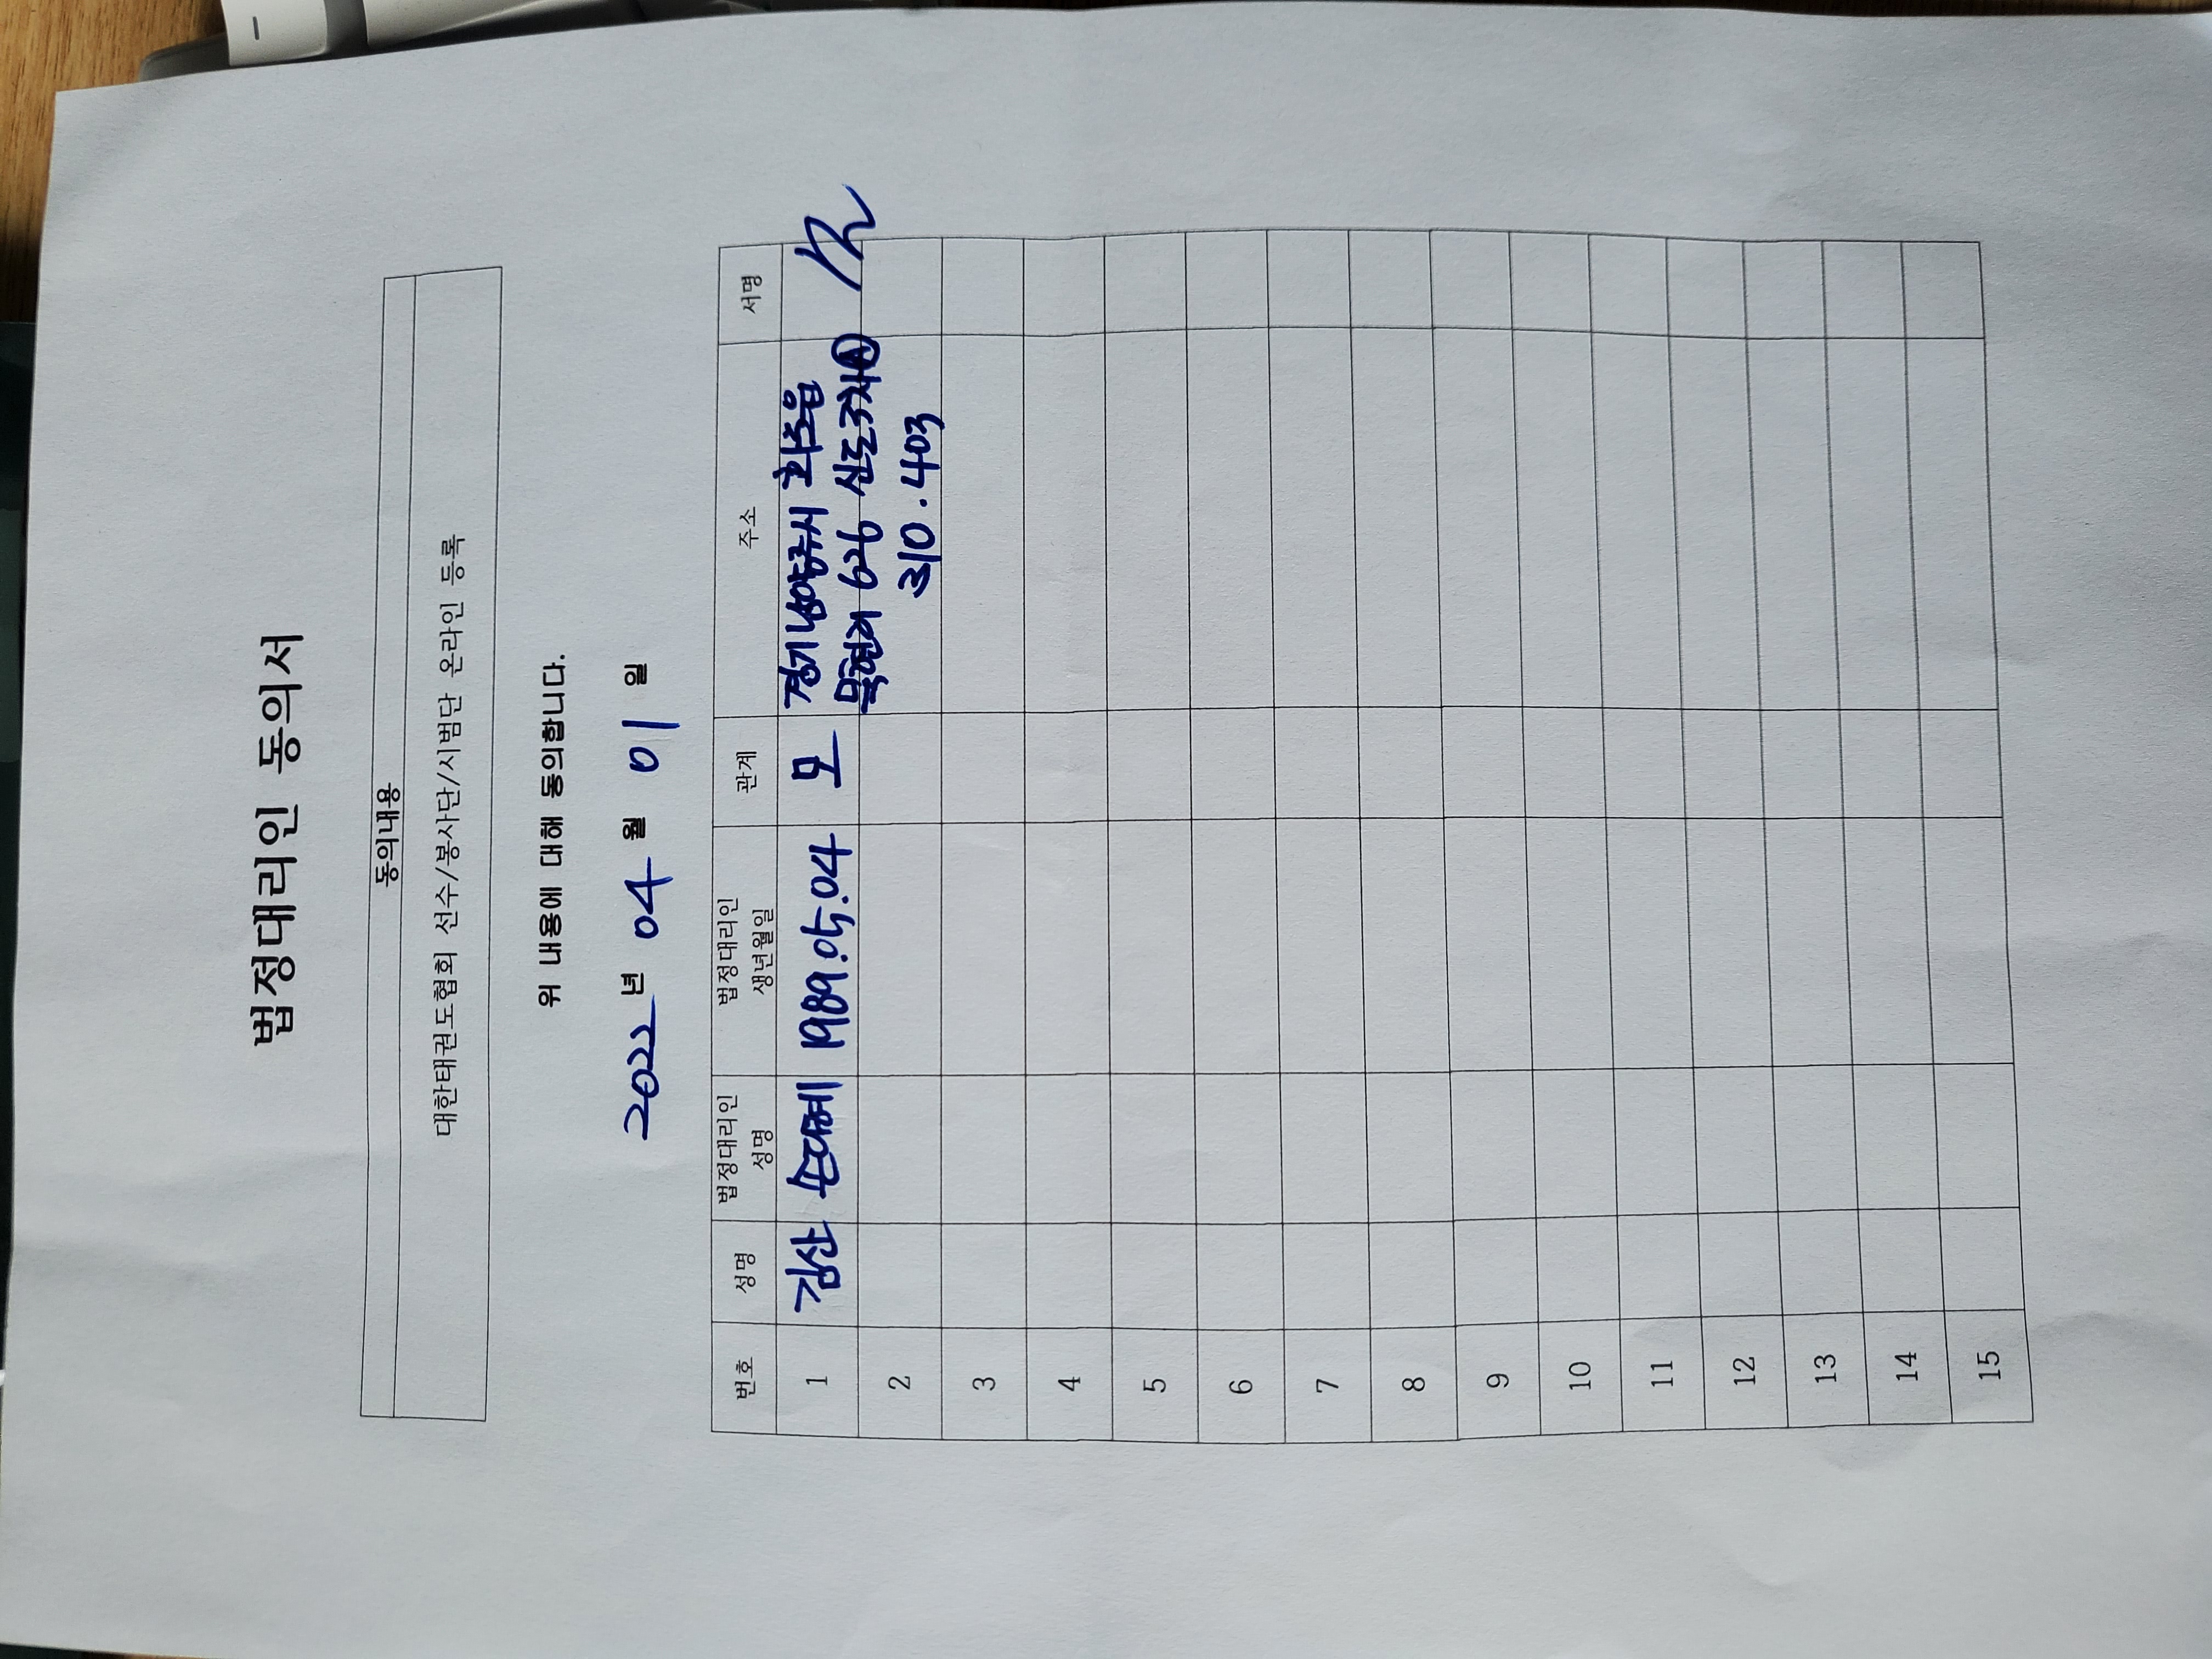 법정대리인 동의서
동의내용
대한태권도협회 선수/봉사단/시범단 온라인 등록
위 내용에 대해 동의합니다.
2022 년 04 월 01 일
번호 성명 법정대리인 성명 법정대리인 생년월일 관계 주소 서명
1 김산 손다혜 1989.05.04 모 경기 남양주시 화도읍
묵현리 626 신도3차Ⓐ
310.403
2
3
4
5
6
7
8
9
10
11
12
13
14
15